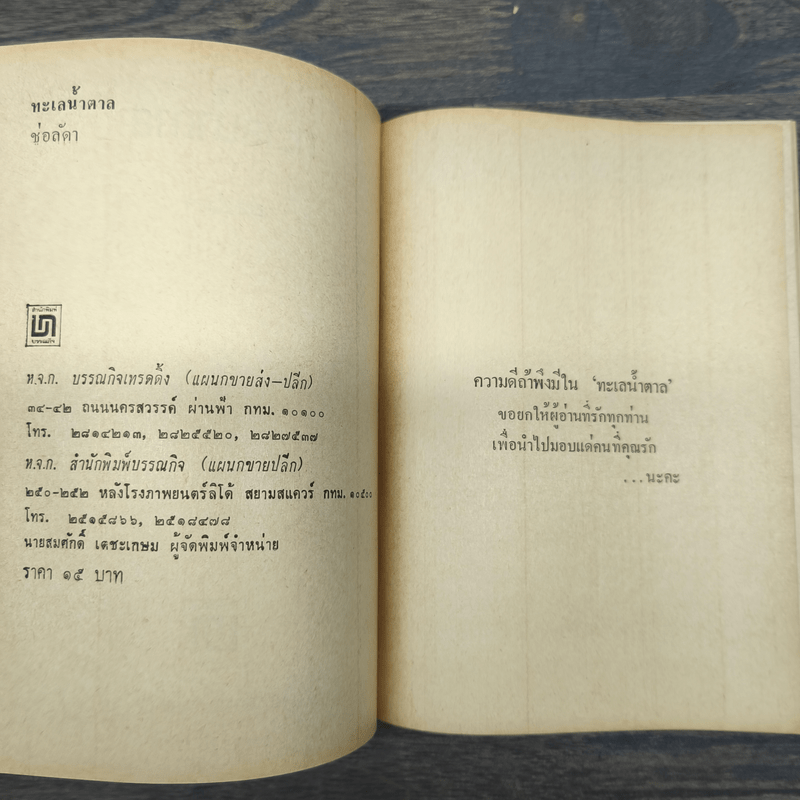 ทะเลน้ำตาล
ช่อลัดา
สำนักพิมพ์
บรรณกิจ
ห.จ.ก. บรรณกิจเทรดดิ้ง (แผนกขายส่ง–ปลีก)
๓๔–๔๒ ถนนนครสวรรค์ ผ่านฟ้า กทม. ๑๐๑๐๐
โทร. ๒๘๑๔๒๑๓, ๒๘๒๕๕๒๐, ๒๘๒๗๕๓๗
ห.จ.ก. สำนักพิมพ์บรรณกิจ (แผนกขายปลีก)
๒๕๐–๒๕๒ หลังโรงภาพยนตร์ลิโด้ สยามสแควร์ กทม. ๑๐๕๐๐
โทร. ๒๕๑๕๘๖๖, ๒๕๑๘๔๗๘
นายสมศักดิ์ เตชะเกษม ผู้จัดพิมพ์จำหน่าย
ราคา ๑๕ บาท
ความดีถ้าพึงมีใน ‘ทะเลน้ำตาล’
ขอยกให้ผู้อ่านที่รักทุกท่าน
เพื่อนำไปมอบแด่คนที่คุณรัก
...นะคะ